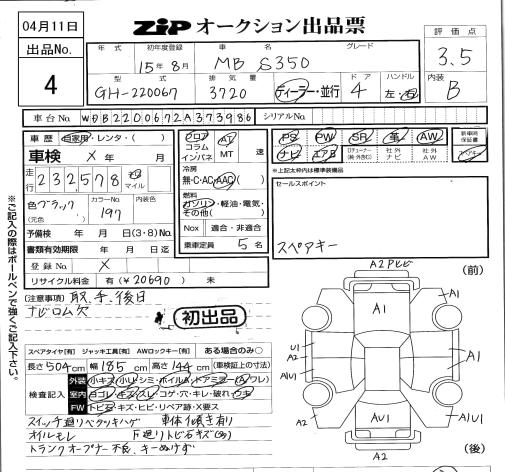 04月11日
ZiP オークション出品票
出品No.
4
年式 初年度登録 車名 グレード
15年8月 MB S350
型式 排気量 ドア ハンドル
GH-220067 3720 ディーラー・並行 4 左・右
評価点
3.5
内装
B
車台No. WDB2200672A373986 シリアルNo.
車歴 自家用・レンタ・( )
車検 × 年 月
走行 232,578 キロ マイル
色 ブラック (元色) カラーNo. 197 内装色
予備検 年 月 日(3・8)No.
書類有効期限 年 月 日迄
登録No. ×
リサイクル料金 有(¥20690) 未
フロア コラム インパネ AT MT 速
冷房
無・C・AC・AAC
燃料
ガソリン・軽油・電気・その他( )
Nox 適合・非適合
乗車定員 5名
PS PW SR 革 AW
ナビ エアB 社外ナビ 社外AW
新車時保証書
※上記太枠内は標準装備品
セールスポイント
スペアキー
(注意事項) 取、手、後日
ナビロム欠
初出品
スペアタイヤ[有] ジャッキ工具[有] AWロックキー[有] ある場合のみ○
長さ504cm 幅185cm 高さ144cm (車検証上の寸法)
検査記入
外装 小キズ・小U・シミ・ホイルA・ドアミラー(A・ワレ)
室内 ヨゴレ・キズ・スレ・コゲ・穴・キレ・破れ・ウキ
FW トビ石・キズ・ヒビ・リペア跡・X要ス
スイッチ過リベタツキハゲ 車体傾き有り
オイルモレ 下廻りトビ石キズ(多)
トランクオープナー不良、キーぬけず
※ご記入の際はボールペンで強くご記入下さい。
A2Pヒビ
(前)
A1
A1
U1
A2
A1U1
AU1
A1U1
A2
A2
(後)